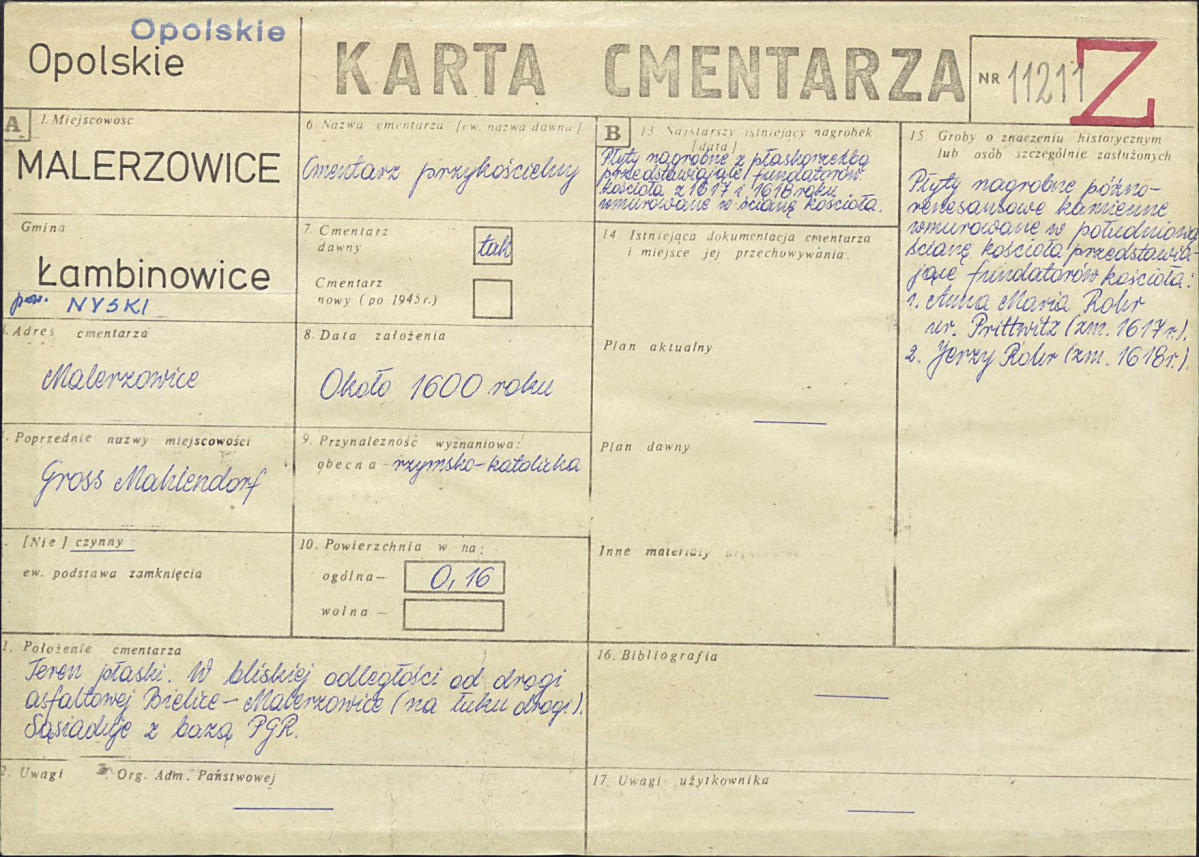 Opolskie
Opolskie
KARTA CMENTARZA
NR 11211
Z
A
1. Miejscowość
MALERZOWICE
Gmina
Łambinowice
pow. NYSKI
Adres cmentarza
Malerzowice
Poprzednie nazwy miejscowości
Gross Mahlendorf
[Nie] czynny
ew. podstawa zamknięcia
6. Nazwa cmentarza [ew. nazwa dawna]
Cmentarz przykościelny
7. Cmentarz
dawny
tak
Cmentarz
nowy (po 1945 r.)
8. Data założenia
Około 1600 roku
9. Przynależność wyznaniowa:
obecna - rzymsko-katolicka
10. Powierzchnia w ha:
ogólna - 0,16
wolna -
1. Położenie cmentarza
Teren płaski. W bliskiej odległości od drogi
asfaltowej Bielice - Malerzowice (na łuku drogi).
Sąsiaduje z bazą PGR.
2. Uwagi Org. Adm. Państwowej
B
13 Najstarszy istniejący nagrobek
[data]
Płyty nagrobne z płaskorzeźbą
przedstawiające fundatorów
kościoła z 1617 i 1618 roku
wmurowane w ścianę kościoła.
14. Istniejąca dokumentacja cmentarza
i miejsce jej przechowywania.
Plan aktualny
Plan dawny
Inne materiały
15. Groby o znaczeniu historycznym
lub osób szczególnie zasłużonych
Płyty nagrobne późno-
renesansowe kamienne
wmurowane w południową
ścianę kościoła przedstawia-
jące fundatorów kościoła:
1. Anna Maria Rohr
ur. Prittwitz (zm. 1617 r.).
2. Jerzy Rohr (zm. 1618 r.).
16. Bibliografia
17. Uwagi użytkownika